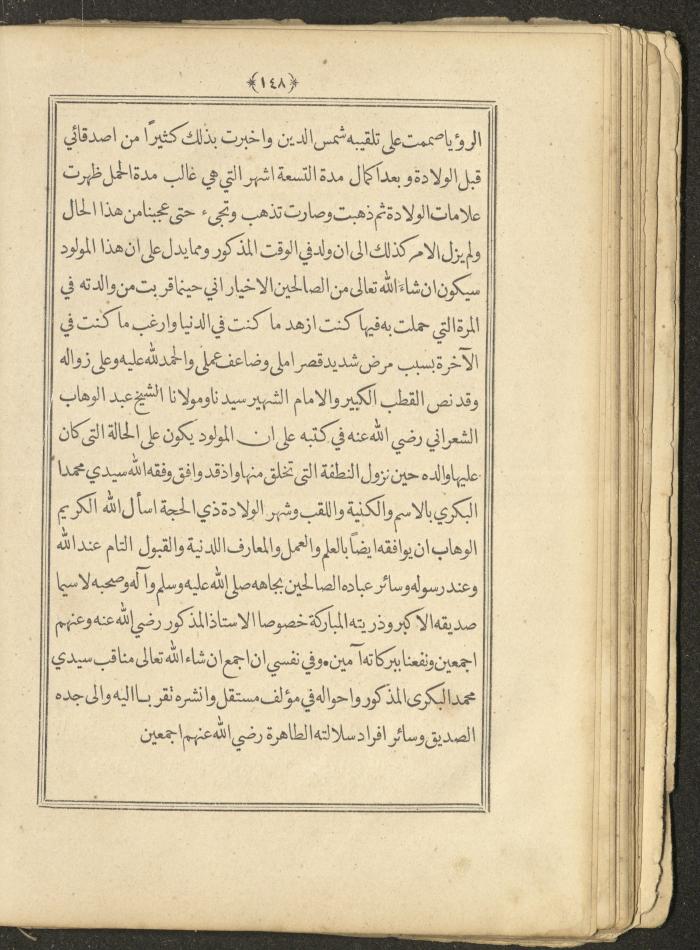 ﴿١٤٨﴾
الرؤيا صممت على تلقيبه شمس الدين واخبرت بذلك كثيرًا من اصدقائي
قبل الولادة وبعد اكمال مدة التسعة اشهر التي هي غالب مدة الحمل ظهرت
علامات الولادة ثم ذهبت وصارت تذهب وتجيء حتى عجبنا من هذا الحال
ولم يزل الامر كذلك الى ان ولد في الوقت المذكور ومما يدل على ان هذا المولود
سيكون ان شاءَ الله تعالى من الصالحين الاخيار اني حينما قربت من والدته في
المرة التي حملت به فيها كنت ازهد ما كنت في الدنيا وارغب ما كنت في
الآخرة بسبب مرض شديد قصر املي وضاعف عملي والحمد لله عليه وعلى زواله
وقد نص القطب الكبير والامام الشهير سيدنا ومولانا الشيخ عبد الوهاب
الشعراني رضي الله عنه في كتبه على ان المولود يكون على الحالة التي كان
عليها والده حين نزول النطفة التي تخلق منها واذ قد وافق وفقه الله سيدي محمداً
البكري بالاسم والكنية واللقب وشهر الولادة ذي الحجة اسأل الله الكريم
الوهاب ان يوافقه ايضاً بالعلم والعمل والمعارف اللدنية والقبول التام عند الله
وعند رسوله وسائر عباده الصالحين بجاهه صلى الله عليه وسلم وآله وصحبه لاسيما
صديقه الاكبر وذريته المباركة خصوصا الاستاذ المذكور رضي الله عنه وعنهم
اجمعين ونفعنا ببركاته آمين. وفي نفسي ان اجمع ان شاء الله تعالى مناقب سيدي
محمد البكري المذكور واحواله في مؤلف مستقل وانشره تقربا اليه والى جده
الصديق وسائر افراد سلالته الطاهرة رضي الله عنهم اجمعين